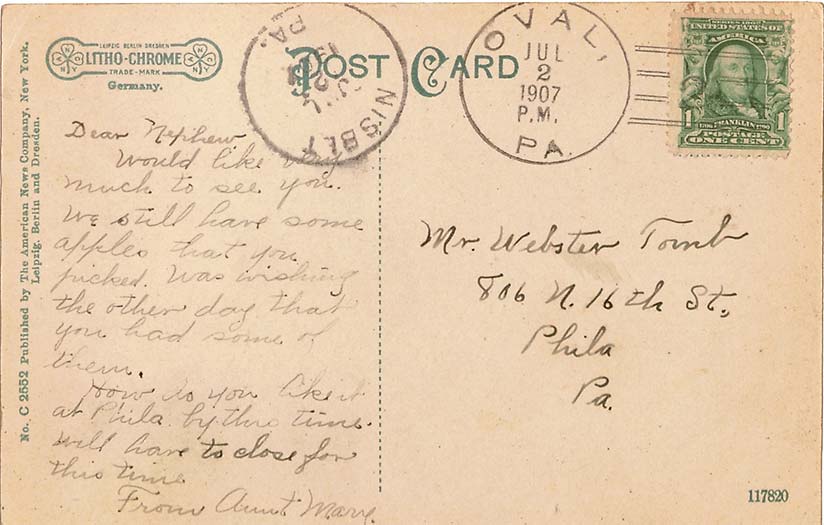 LEIPZIG BERLIN DRESDEN
LITHO-CHROME
TRADE-MARK
Germany.
POST CARD
NISBET
PA.
JUL
OVAL,
JUL
2
1907
P.M.
PA.
SERIES 1902
UNITED STATES OF
AMERICA
1706 FRANKLIN 1790
POSTAGE
1 ONE CENT 1
No. C 2552 Published by The American News Company, New York.
Leipzig, Berlin and Dresden.
Dear Nephew
Would like very
much to see you.
We still have some
apples that you
picked. Was wishing
the other day that
you had some of
them.
How do you like it
at Phila. by this time.
Will have to close for
this time
From Aunt Mary.
Mr. Webster Tomb
806 N. 16th St.
Phila
Pa.
117820